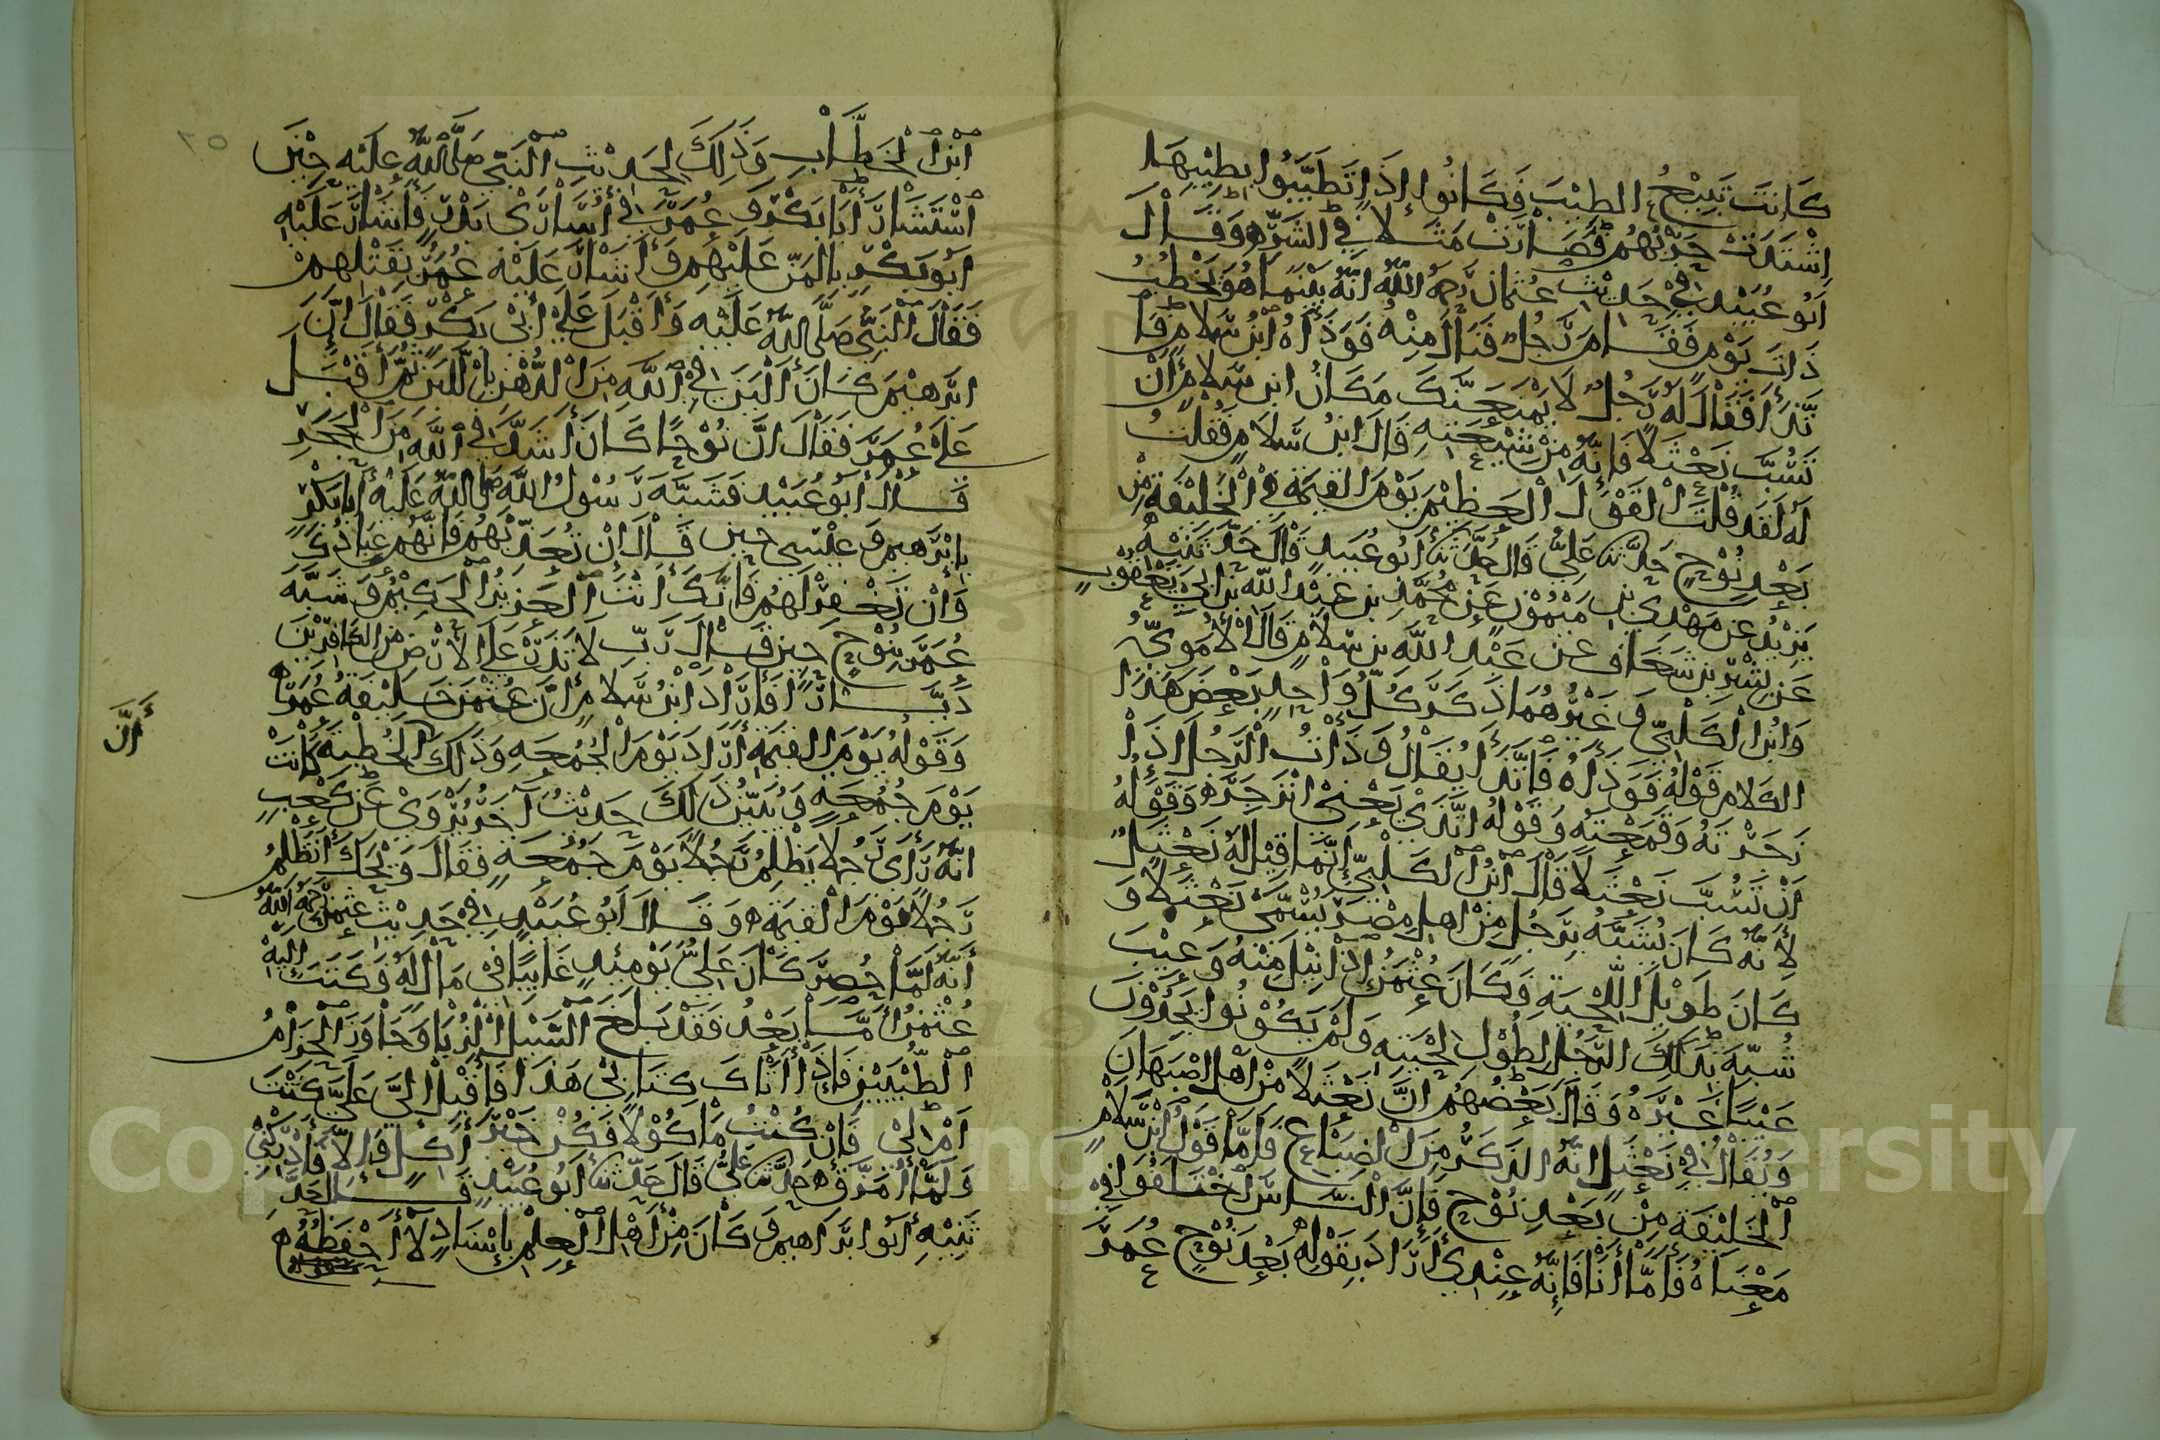 كَانَت تَبِيْعُ الطِيْبَ فَكَانُوا إذَا تَطَيَّبُوا بِطِيْبِهَا
اِشْتَدَتْ حَرْبُهُم فَصَارَتْ مَثَلا في الشَرِّ ه وَقَالَ
اَبُو عُبَيْد في حَدِيث عُثمان رَحِمَهُ اللّهُ انّهُ بَيْنَمَا هُوَ يَخْطُبُ
ذَاتَ يَوْمٍ فَقَامَ رَجُلٌ فَنَالَ مِنْهُ فَوَذَأَهُ ابْنُ سَلَامٍ فَا
تَّذَأَ فَقَالَ لَهُ رَجُلٌ لَا يَمْنَعَنَّكَ مَكَانُ ابن سَلَامٍ أن
تَسُبَّ نَعْثَلًا فَإنَّهُ مِنْ شِيْعَتِهِ قَالَ ابنُ سَلَامٍ فَقُلْتُ
لَهُ لَقَد قُلْتَ الْقَوْلَ الْعَظِيْمَ يَوْمَ القِيمَةِ في الْخَلِيْفَةِ مِنْ
بَعْدِ نُوْحٍ حَدَّثَنَا عَلِيٌّ قَالَ حَدَّثَنَا أَبُو عُبَيدٍ قَالَ حَدَّثَنِيْهِ
يَزِيْدُ عن مَهْدِي بن مَيْمُوْنٍ عَنْ مُحَمَّدِ بن عَبْدِ اللّه بن ابي يَعْقُوْبٍ
عَن بِشْرِ بن شَغَافٍ عن عَبْدِ اللّه بن سَلَامٍ قَالَ الْأُمَوِيُّ
وَابْنُ الْكَلْبِيِّ وَغَيْرُهُمَا ذَكَرَ كُلُّ وَاحِدٍ بَعْضَ هَذَا
الكَلَامِ قَوْلُهُ فَوَذَأَهُ فَاتَّذَأَ يُقَالُ وَذَأْتُ الْرَجُلَ إذَا
زَجَرْتَهُ وَقَمَعْتَهُ وَقَوْلُهُ اتَّذَيْ يَعْنِيْ انْزَجَرَ ه وَقَوْلُهُ
أَنْ تَسُبَّ نَعْثَلًا قَالَ ابْنُ الْكَلْبِيِّ إنَّمَا قِيْلَ لَهُ نَعْثَلٌ
لِأَنَّهُ كَانَ يُشَبَّهُ بِرَجُلٍ مِنْ اهلِ مِصْرَ يُسَمَّىْ نَعْثَلًا وَ
كَانَ طَوِيْلَ اللِّحْيَةِ وَكَانَ عُثْمٰنُ إذَا نِيْلَ مِنْهُ وَعِيْبَ
شُبِّهَ بِذَلِكَ الْرَجُلِ لِطُوْلِ لِحْيَتِهِ وَلَمْ يَكُوْنُوا يَجِدُوْنَ
عَيْبًا غَيْرَهُ وَقَالَ بَعْضُهُم انَّ نَعْثَلًا مِنْ أَهْلِ اصْبَهَانَ
وَيُقَالُ في نَعْثَلٍ انَّهُ الذَكَرُ مِنَ الْضِبَاعِ فَاَمَّا قَوْلُ ابْنِ سَلَامٍ
الْخَلِيْفَةِ مِنْ بَعْدِ نُوْحٍ فَإنَّ الْنَاسَ اخْتَلَفُوا فِيْ
مَعْنَاهُ فَأَمَّا أَنَا فَإِنَّهُ عِنْدِي أَرَادَ بِقَوْلِهِ بَعْدَ نُوْحٍ عُمَرَ
ابْنَ الْخَطَّابِ وَذَلِكَ لِحَدِيْثِ الْنَبَيِّ صَلَّى اللّهُ عَلَيْه حِيْنَ
اسْتَشَارَ أَبَا بَكْرٍ وَ عُمَرَ في أُسَارَى بَدْرٍ فَأَشَارَ عَلَيْهِ
ابُو بَكْرٍ بِالْمَنِّ عَلَيْهِم وَأَشَارَ عَلَيْهِ عُمَرُ بِقَتْلِهِمْ
فَقَالَ النَبِيُّ صَلَّى اللّهُ عَلَيْهِ وَأَقْبَلَ عَلَى أَبِيْ بَكْرٍ فَقَالَ إنَّ
ابْرَهِيْمَ كَانَ أَلْيَنَ فِي اللّهِ مِنَ الْدُّهْنِ بِالْلَّبَنِ ثُمَّ أَقْبَلَ
عَلَى عُمَرَ فَقَالَ انَّ نُوْحًا كَانَ أَشَدَّ في اللّهِ مِنَ الْحَجَرِ
قَالَ أَبُو عُبَيْدٍ فَشَبَّهَ رَسُوْلُ اللّهِ صَلى اللّهُ عَلَيْهِ أَبَا بَكْرٍ
بِإبْرَهِيم وَ عِيْسَى حِينَ قَالَ إن تُعَذِّبْهُم فَإنَّهُم عِبَادُكَ
وَإنْ تَغْفِرْ لَهُم فَإنَّكَ أَنْتَ الْعَزِيْزُ الْحَكِيْمُ وَ شَبَّهَ
عُمَرَ بِنُوْحٍ حِيْنَ قَالَ رَبِّ لَا تَذَرْ عَلَى الْأَرْضِ مِنَ الكَافِرِيْنَ
دَيَّارًا فَأَرَادَ ابْنُ سَلَامٍ أنَّ عُثْمٰنَ خَلِيْفَةُ عُمَرَ ه
أَنَّ
وَقَوْلُهُ يَوْمَ القِيمَةِ أَرَادَ يَوْمَ الْجُمُعَةِ وَذَلِكَ الْخُطْبَةَ كَانَتْ
يَوْمَ جُمُعَةٍ وَيُبَيِّنُ ذَلِكَ حَدِيْثٌ آخَرُ يُرْوَىْ عَنْ كَعْبٍ
انَّهُ رَأَى رَجُلًا يَظْلِمُ رَجُلًا يَوْمَ جُمُعَةٍ فَقَالَ وَيْحَكَ أَتَظْلِمُ
رَجُلًا يَوْمَ الْقِيمَةِ ه وَ قَالَ اَبُو عُبَيْدٍ في حَدِيْثِ عُثْمٰنَ رَحِمَهُ اللّهُ
أَنَّهُ لَمَّا حُصِرَ كَانَ عَلِيٌّ يَوْمَئِذٍ غَايِبًا فِيْ مَالٍ لَهُ وَكَتَبَ إلَيْهِ
عُثْمٰنُ أَمَّا بَعْدُ فَقَدْ بَلَغَ السَّيْلُ الْزُبَا وَجَاوَزَ الْحِزَامُ
الْطُبْيَيْنِ فَإذَا أَتَاكَ كِتَابِيْ هَذَا فَأَقْبِلْ إلَيَّ عَلَيَّ كُنْتَ
أَمْ لِيْ فَإنْ كُنْتُ مَاكُوْلًا فَكُنْ خَيْرَ آكِلٍ وَإلَّا فَأَدْرِكْنِيْ
وَلَمَّا أُمَزَّقِ ه حَدَّثَنَا عَلِيٌّ قَالَ حَدَّثَنَا أَبُو عُبَيْدٍ قَالَ حَدَّ
ثَنِيْهِ أَبُو ابْرَاهِيم وَ كَانَ مِنْ أَهْلِ الْعِلْمِ بِإسْنَادٍ لَا أَحْفَظُهُ ه